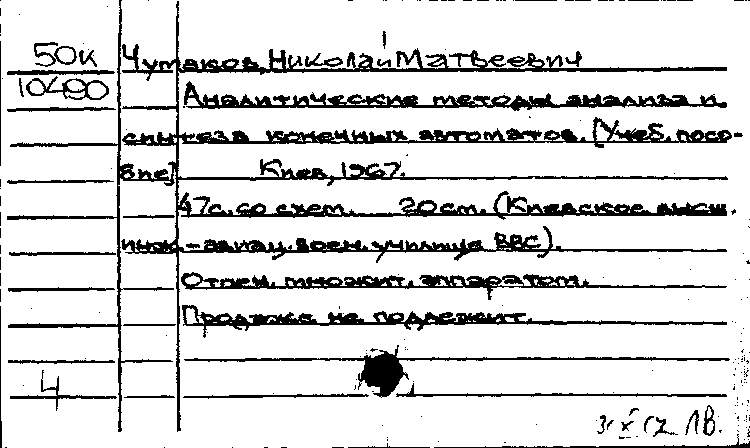 50к Чумаков, Николай Матвеевич
10490
Аналитические методы анализа и
синтеза конечных автоматов. [Учеб. посо-
бие] Киев, 1967.
47с. со схем. 20 см. (Киевское высш.
инж.-авиац. воен. училище ВВС).
Отпеч. множит. аппаратом.
Продаже не подлежит.
4
ЛВ.